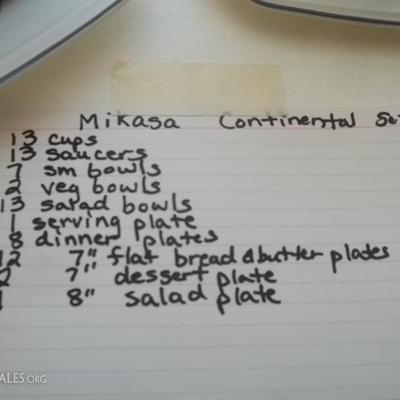 Mikasa Continental
13 cups
13 saucers
7 sm bowls
2 veg bowls
13 salad bowls
1 serving plate
8 dinner plates
12 7" flat bread & butter plates
2 7" dessert plate
8" salad plate
ALES.ORG